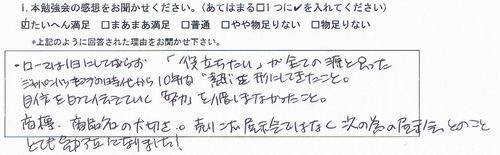 1. 本勉強会の感想をお聞かせください。(あてはまる□1つに✔を入れてください)
☑たいへん満足 □まあまあ満足 □普通 □やや物足りない □物足りない
*上記のように回答された理由をお聞かせ下さい。
・ローマは1日にしてならず 「役立ちたい」が全ての源と思った
ジャパネットの時代から10年 "想い"を形にしてきたこと。
自信を以て伝えていく 努力を惜しまなかったこと。
商標、商品名の大切さ。売りこむ展示会ではなく次の為の展示会とのこと
とても参考になりました!